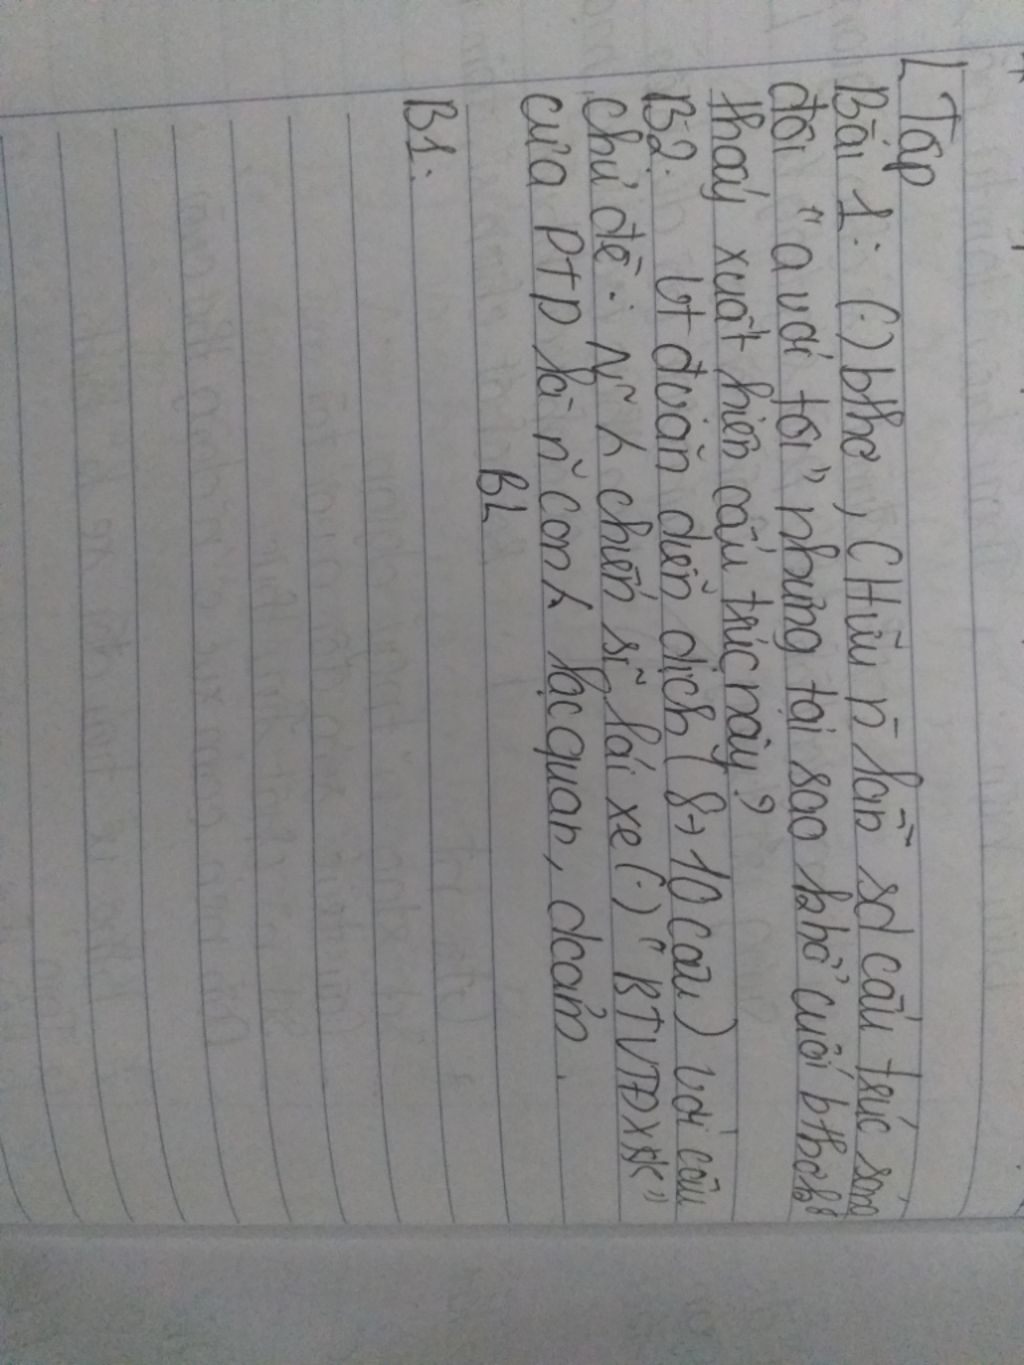 L Tập
Bài 1: (.) bthơ, CHữu n~ lần sd cấu trúc sóng
đôi "a với tôi" nhưng tại sao khổ cuối bthơ k
thấy xuất hiện cấu trúc này?
B2: Vt đoạn diễn dịch (8→10 câu) với câu
chủ đề: N~ ch chiến sĩ lái xe (.) "BTVTĐXKK"
của PTD là n~ con ng lạc quan, dcảm.
BL
B1: